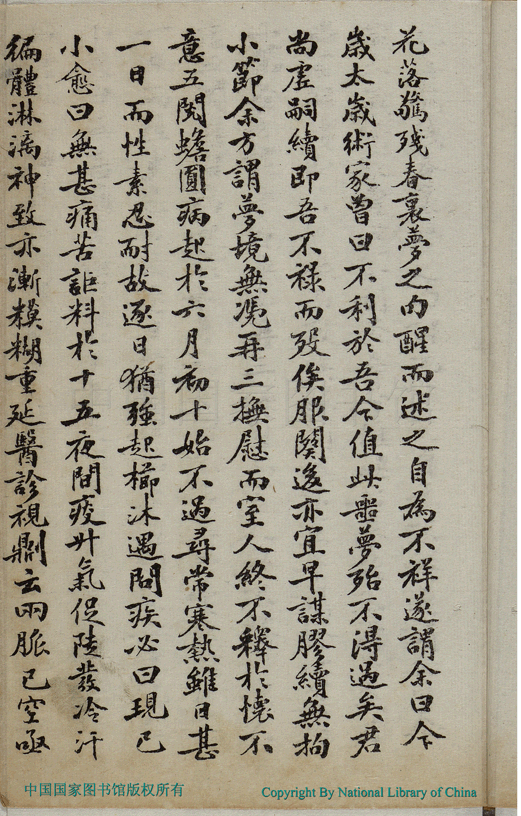 花落驚殘春裏夢之句醒而述之自為不祥遂謂余曰今
歲太歲術家曾曰不利於吾今值此噩夢殆不得過矣君
尚虛嗣續即吾不祿而歿俟服闋後亦宜早謀膠續無拘
小節余方謂夢境無憑再三撫慰而室人終不釋於懷不
意五閱蟾圓病起於六月初十始不過尋常寒熱雖日甚
一日而性素忍耐故逐日猶強起櫛沐遇問疾必曰現已
小愈曰無甚痛苦詎料於十五夜間痰升氣促陡發冷汗
徧體淋漓神致亦漸糢糊重延醫診視劑云兩脈已空亟
中国国家图书馆版权所有
Copyright By National Library of China